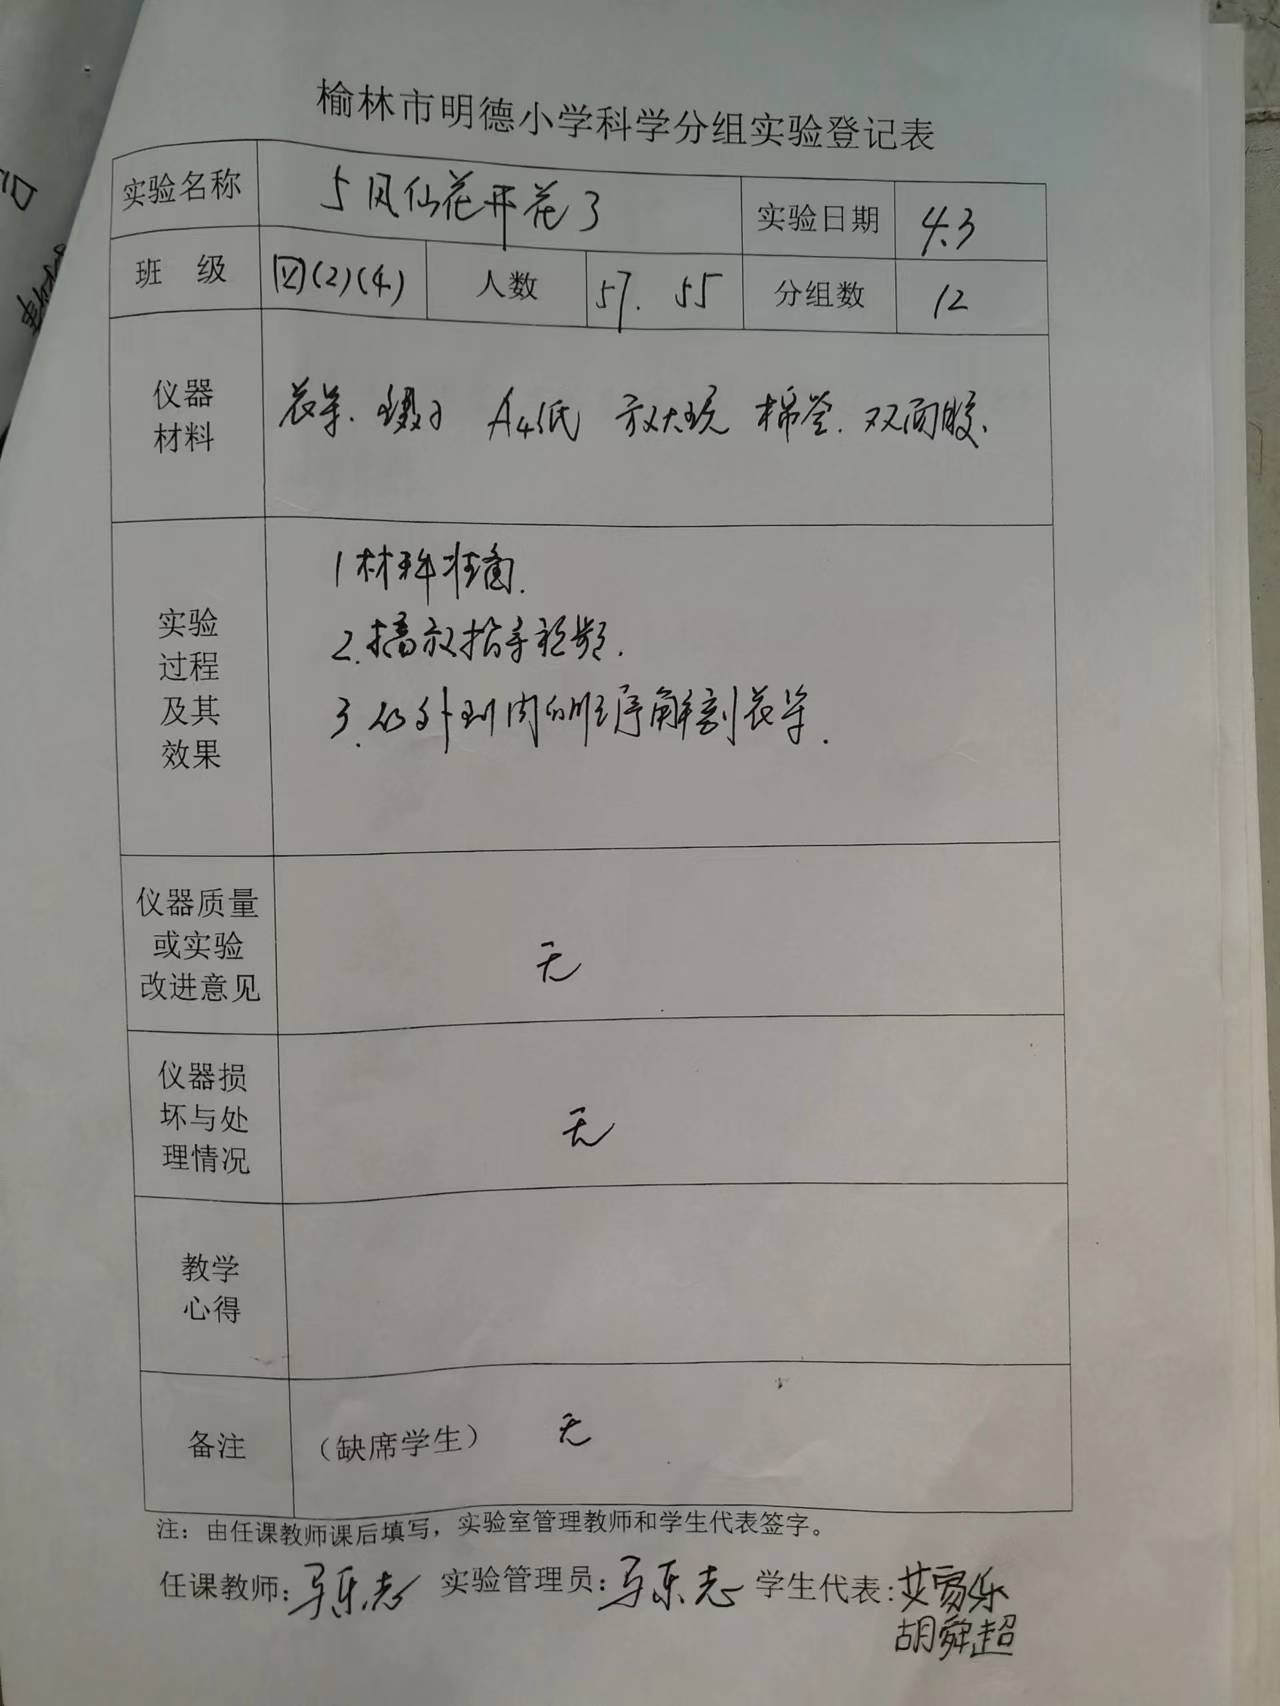 榆林市明德小学科学分组实验登记表
实验名称 5 凤仙花开花了 实验日期 4.3
班 级 四(2)(4) 人数 57. 55 分组数 12
仪器
材料
花朵. 镊子 A4纸 放大镜 棉签. 双面胶.
实验
过程
及其
效果
1 材料准备.
2. 播放指导视频.
3. 从外到内的顺序解剖花朵.
仪器质量
或实验
改进意见
无
仪器损
坏与处
理情况
无
教学
心得
备注 (缺席学生) 无
注：由任课教师课后填写，实验室管理教师和学生代表签字。
任课教师: 实验管理员: 学生代表:
胡舜超